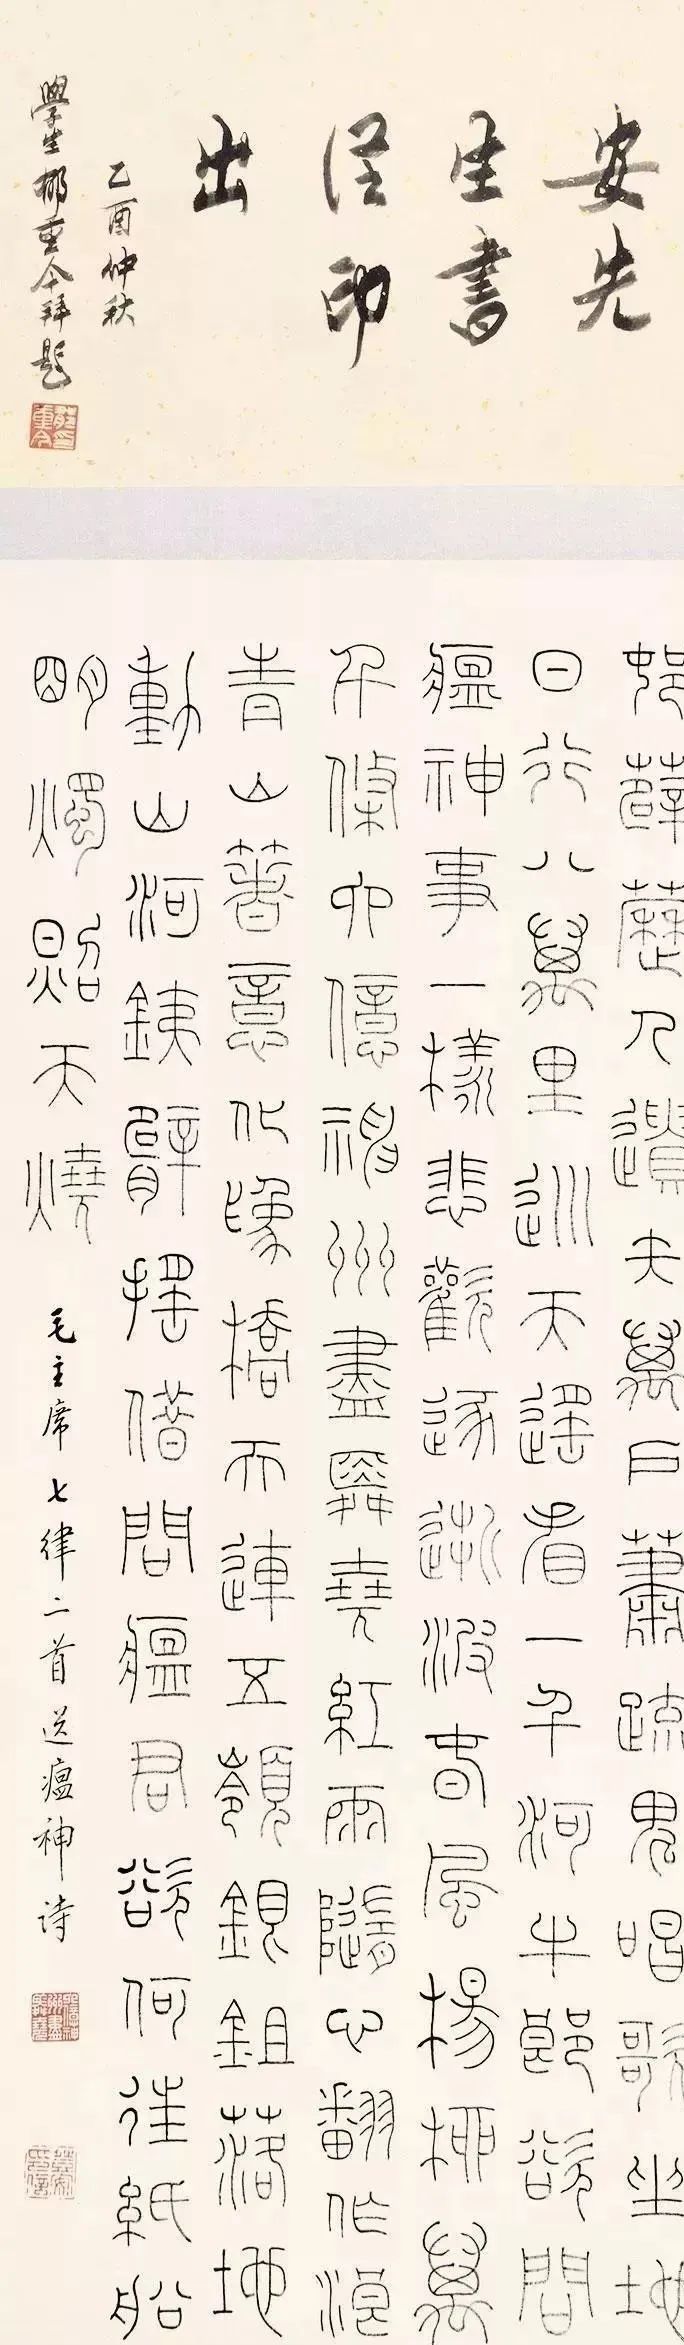 安先
生書
印
出
乙酉仲秋
學生 重今拜題
邨薜荔人遺矢萬戶蕭疏鬼唱歌坐地
日行八萬里巡天遙看一千河牛郎欲問
瘟神事一樣悲歡逐逝波春風楊柳萬
千條六億神州盡舜堯紅雨隨心翻作浪
青山著意化為橋天連五嶺銀鉏落地
動山河鐵臂搖借問瘟君欲何往紙船
明燭照天燒
毛主席七律二首送瘟神诗